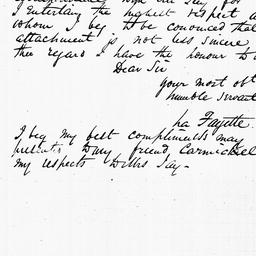 I entertain the highest respect a
whom I beg to be convinced that
attachment is not less sincere
this regard I have the honour to
Dear Sir
your most obt
humble Servant
La Fayette
I beg my best compliments may
presented to my friend Carmichael
my respects to Mrs Jay-